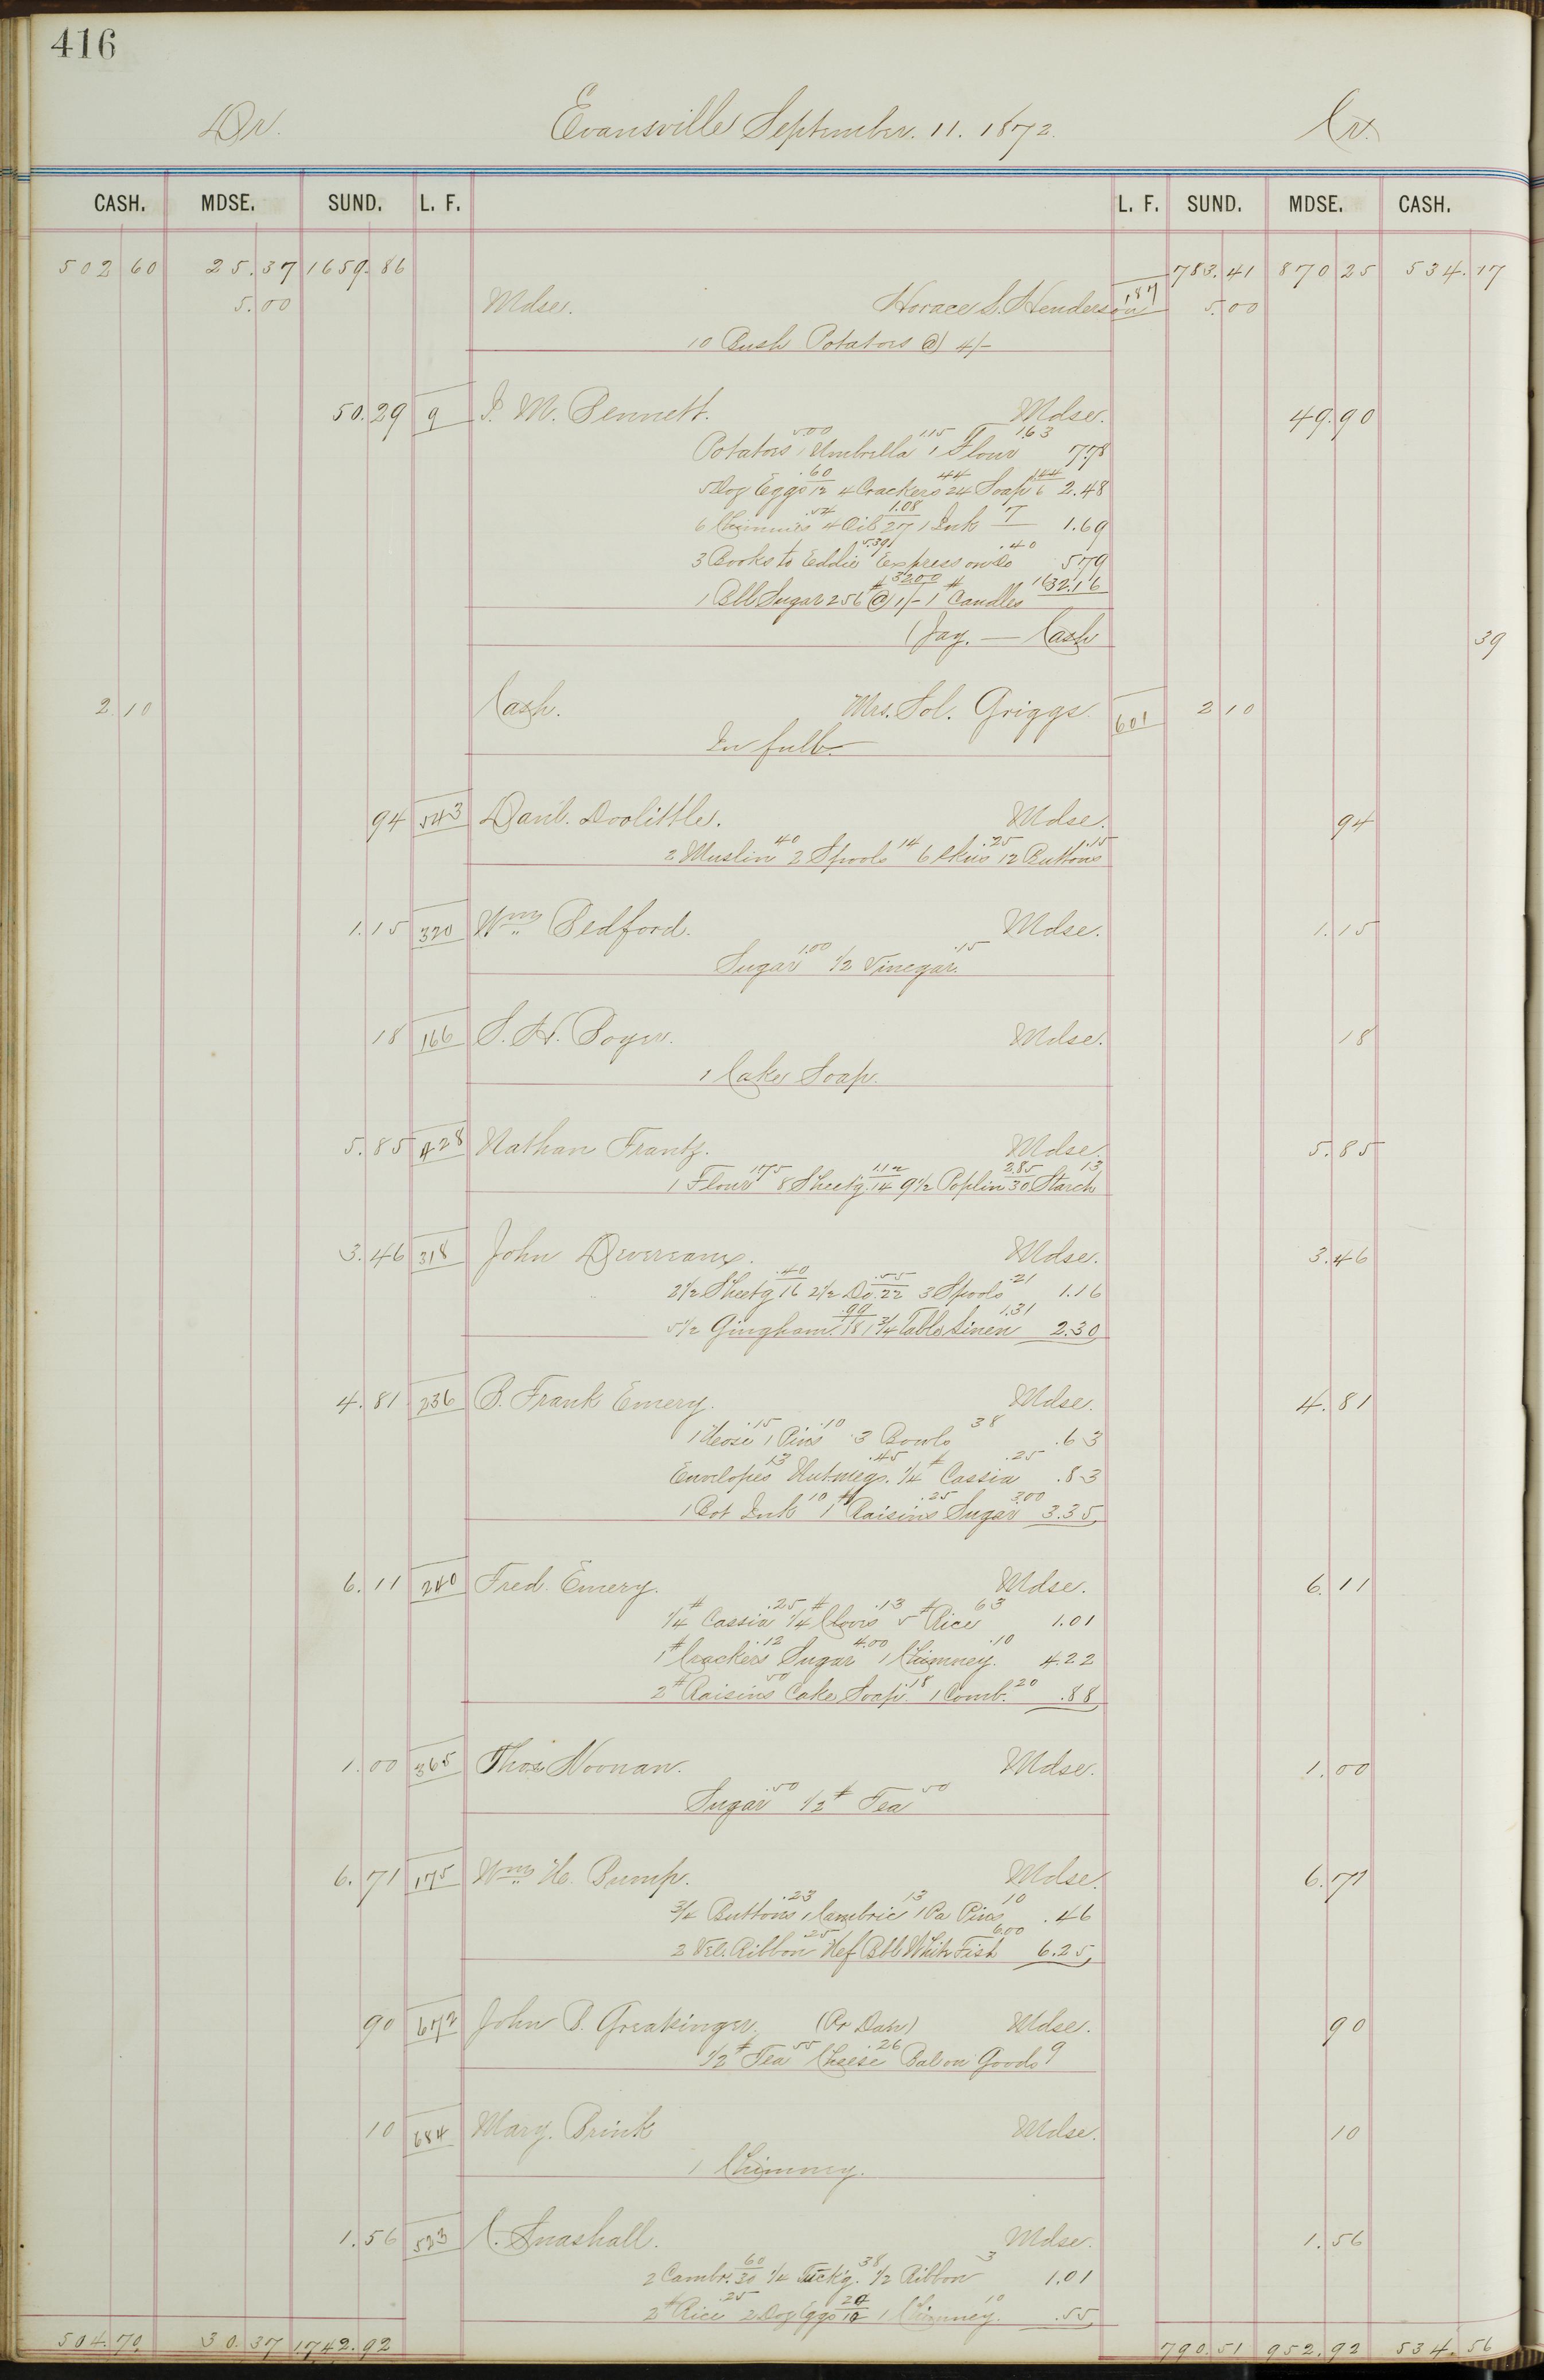 416
Dr. Evansville September. 11. 1872. Cr.
CASH. MDSE. SUND. L. F. L. F. SUND. MDSE. CASH.
502 60 25.37 1659.86 783.41 870 25 534.17
5.00 Mdse. Horace S. Henderson 187 5.00
10 Bush Potatoes @ 4/-
50.29 9 I. M. Bennett. Mdse. 49.90
Potatoes 5.00 1 Umbrella 1.15 1 Flour 1.63 7.78
5 Doz Eggs .60/12 4 Crackers .44 24 Soap 1.44/6 2.48
6 Chimnies .54 4 Oil 1.08/27 1 Ink 7 1.69
3 Books to Eddie 5.39 Express on Do .40 5.79
1 Bbl Sugar 256 # @ 1/- 32.00 1 # Candles 16 32.16
1 Jag. — Cash 39
2.10 Cash. Mrs. Sol. Griggs. 601 2 10
In full
94 543 Danl. Doolittle. Mdse. 94
2 Muslin 40 2 Spools 14 6 Skns .25 12 Buttons .15
1.15 320 Wm Bedford. Mdse. 1.15
Sugar 1.00 1/2 Vinegar .15
18 166 S. H. Boyer. Mdse. 18
1 Cake Soap.
5.85 428 Nathan Frantz. Mdse. 5.85
1 Flour 1.75 8 Sheet'g 1.12/14 9 1/2 Poplin 2.85/30 Starch 13
3.46 318 John Devereaux. Mdse. 3.46
2 1/2 Sheet'g .40/16 2 1/2 Do. .55/22 3 Spools .21 1.16
5 1/2 Gingham .99/18 1 3/4 Table Linen 1.31 2.30
4.81 236 B. Frank Emery. Mdse. 4.81
1 Hose .15 1 Pins .10 3 Bowls 38 .63
Envelopes 13 Nutmegs. .45 1/4 # Cassia .25 .83
1 Bot Ink 10 1 # Raisins .25 Sugar 3.00 3.35
6.11 240 Fred. Emery. Mdse. 6.11
1/4 # Cassia .25 1/4 # Cloves .13 5 # Rice 63 1.01
1 # Crackers .12 Sugar 4.00 1 Chimney. .10 4.22
2 # Raisins 50 Cake Soap. 18 1 Comb. 20 .88
1.00 365 Thos Noonan. Mdse. 1.00
Sugar .50 1/2 # Tea 50
6.71 175 Wm H. Bump. Mdse. 6.71
3/4 Buttons .23 1 Cambric 13 1 Pa Pins 10 .46
2 Vel. Ribbon .25 Hef Bbl White Fish 6.00 6.25
90 672 John B. Greakinger. (Pr Dau) Mdse. 90
1/2 # Tea 55 Cheese .26 Bal on Goods 9
10 684 Mary. Brink Mdse. 10
1 Chimney.
1.56 523 C. Snashall. Mdse. 1.56
2 Cambr. 60/30 1/4 Tuck'g. 38 1/2 Ribbon 3 1.01
2 # Rice .25 2 Doz Eggs 20/10 1 Chimney. 10 .55
504.70 30.37 1742.92 790.51 952.92 534.56